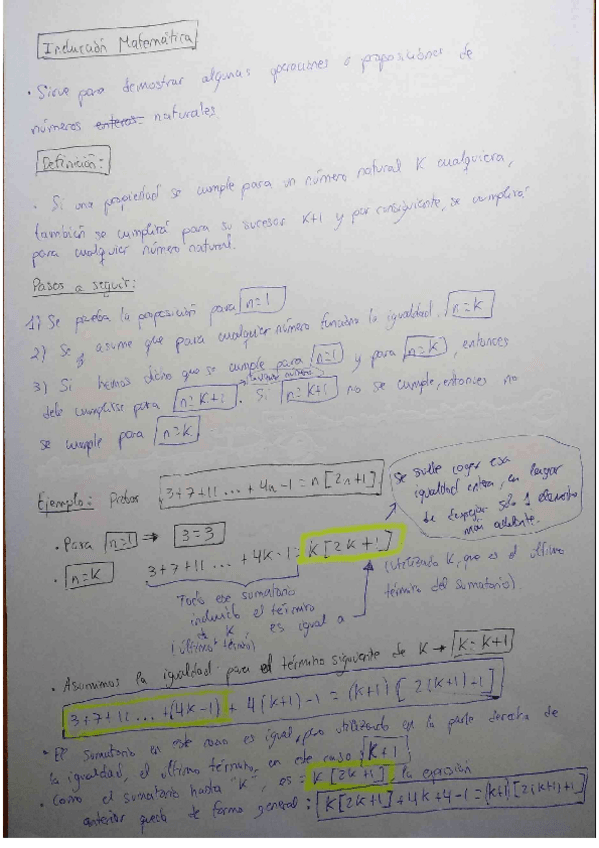 Inducción Matemática
· Sirve para demostrar algunas operaciones o proposiciones de
números enteros naturales.
Definición:
· Si una propiedad se cumple para un número natural K cualquiera,
también se cumplirá para su sucesor K+1 y por consiguiente, se cumplirá
para cualquier número natural.
Pasos a seguir:
1) Se prueba la proposición para n=1
2) Se asume que para cualquier número funciona la igualdad, n=K
3) Si hemos dicho que se cumple para n=1 y para n=K, entonces
debe cumplirse para n=K+1. Si n=K+1 no se cumple, entonces no
se cumple para n=K
Ejemplo: Probar 3+7+11 ... +4n-1=n[2n+1]
Se suele coger esa
igualdad entera, en lugar
de despejar sólo 1 elemento
más adelante.
· Para n=1 → 3=3
· n=K 3+7+11 ... +4K-1=K[2K+1]
(utilizado K, que es el último
término del sumatorio).
Todo ese sumatorio
incluido el término
K
(último término) es igual a
· Asumimos la igualdad para el término siguiente de K → K=K+1
3+7+11 ... +(4K-1)+4(K+1)-1=(K+1)[2(K+1)+1]
· El sumatorio en este caso es igual, pero utilizando en la parte derecha de
la igualdad, el último término, en este caso K+1
· Como el sumatorio hasta "K", es = K[2K+1], la expresión
anterior queda de forma general: K[2K+1]+4K+4-1=(K+1)[2(K+1)+1]